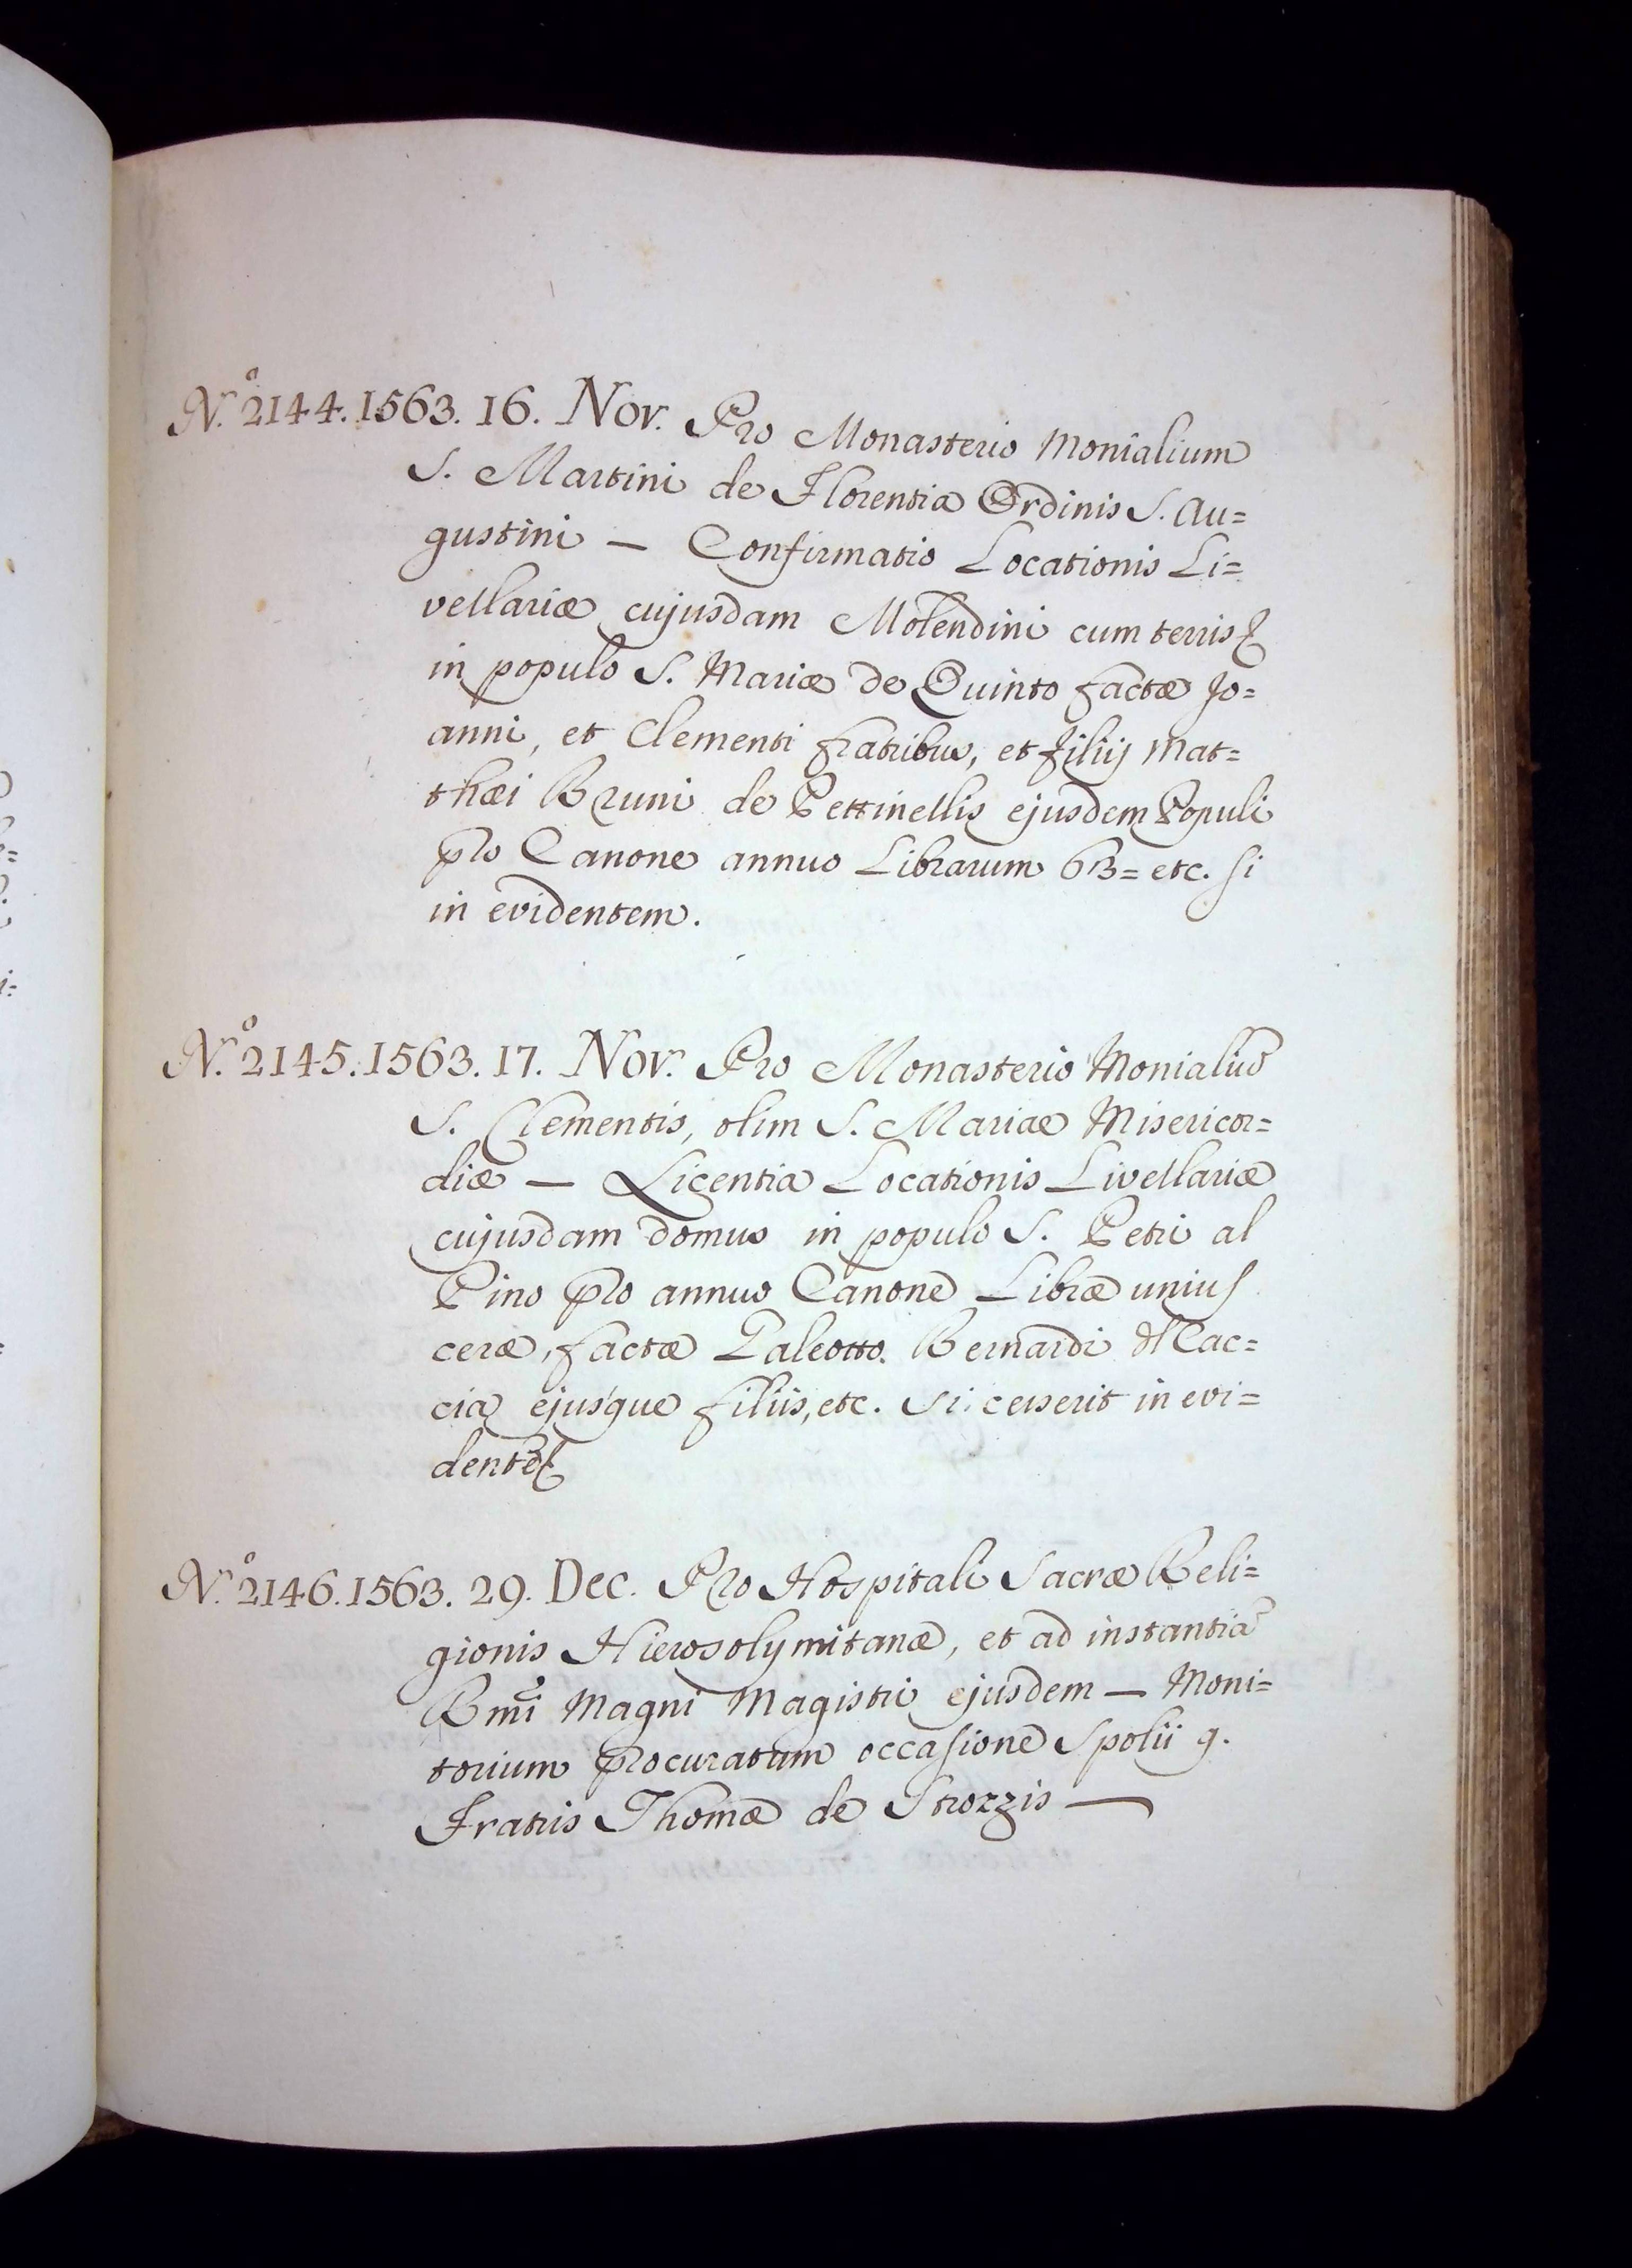 N.º 2144. 1563. 16. Nov. Pro Monasterio Monialium
S. Martini de Florentia Ordinis S. Au=
gustini — Confirmatio Locationis Li=
vellariæ cujusdam Molendini cum terris &
in populo S. Mariæ de Quinto factæ Jo=
anni, et Clementi fratribus, et filiij Mat=
thæi Bruni de Pettinellis ejusdem Populi
pro Canone annuo Librarum 63= etc. si
in evidentem.
N.º 2145. 1563. 17. Nov. Pro Monasterio Monialiũ
S. Clementis, olim S. Mariae Misericor=
diæ — Licentia Locationis Livellariæ
cujusdam domus in populo S. Petri al
Pino pro annuo Canone Libræ unius
ceræ, factæ Galeotto Bernardi Mac=
cia ejusque filiis, etc. Si cesserit in evi=
dentẽ &
N.º 2146. 1563. 29. Dec. Pro Hospitali Sacræ Reli=
gionis Hierosolymitanæ, et ad instantiã
Rmi Magni Magistri ejusdem — Moni=
torium procuratum occasione Spolii q.
Fratris Thomæ de Strozzis —